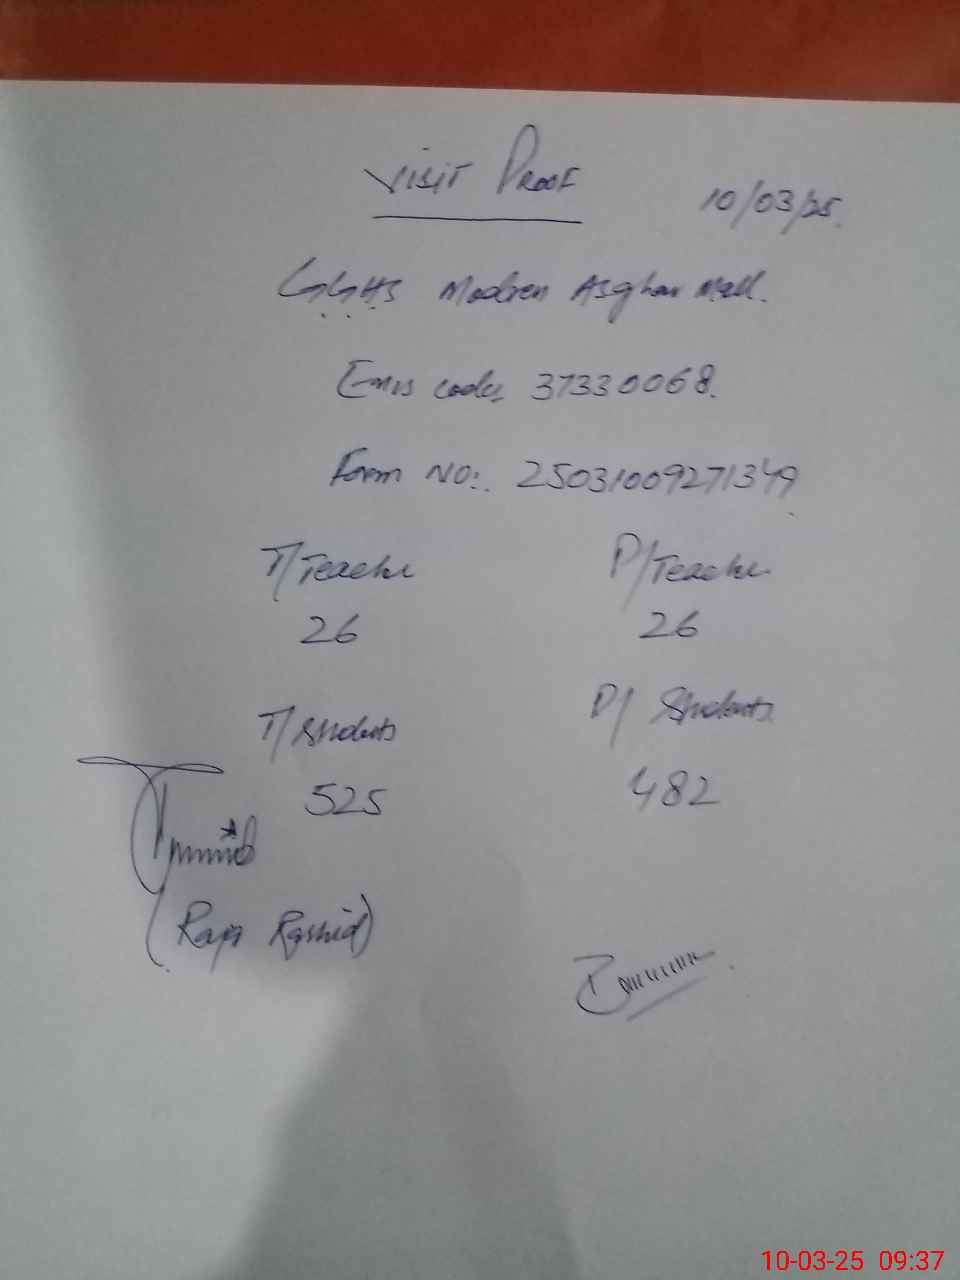 Visit Proof
10/03/25.
GGHS Modren Asghar Mall.
Emis code 37330068.
Form No:. 25031009271349
T/Teache P/Teache
26 26
T/Students P/ Students
525 482
(Raja Rashid)
10-03-25 09:37